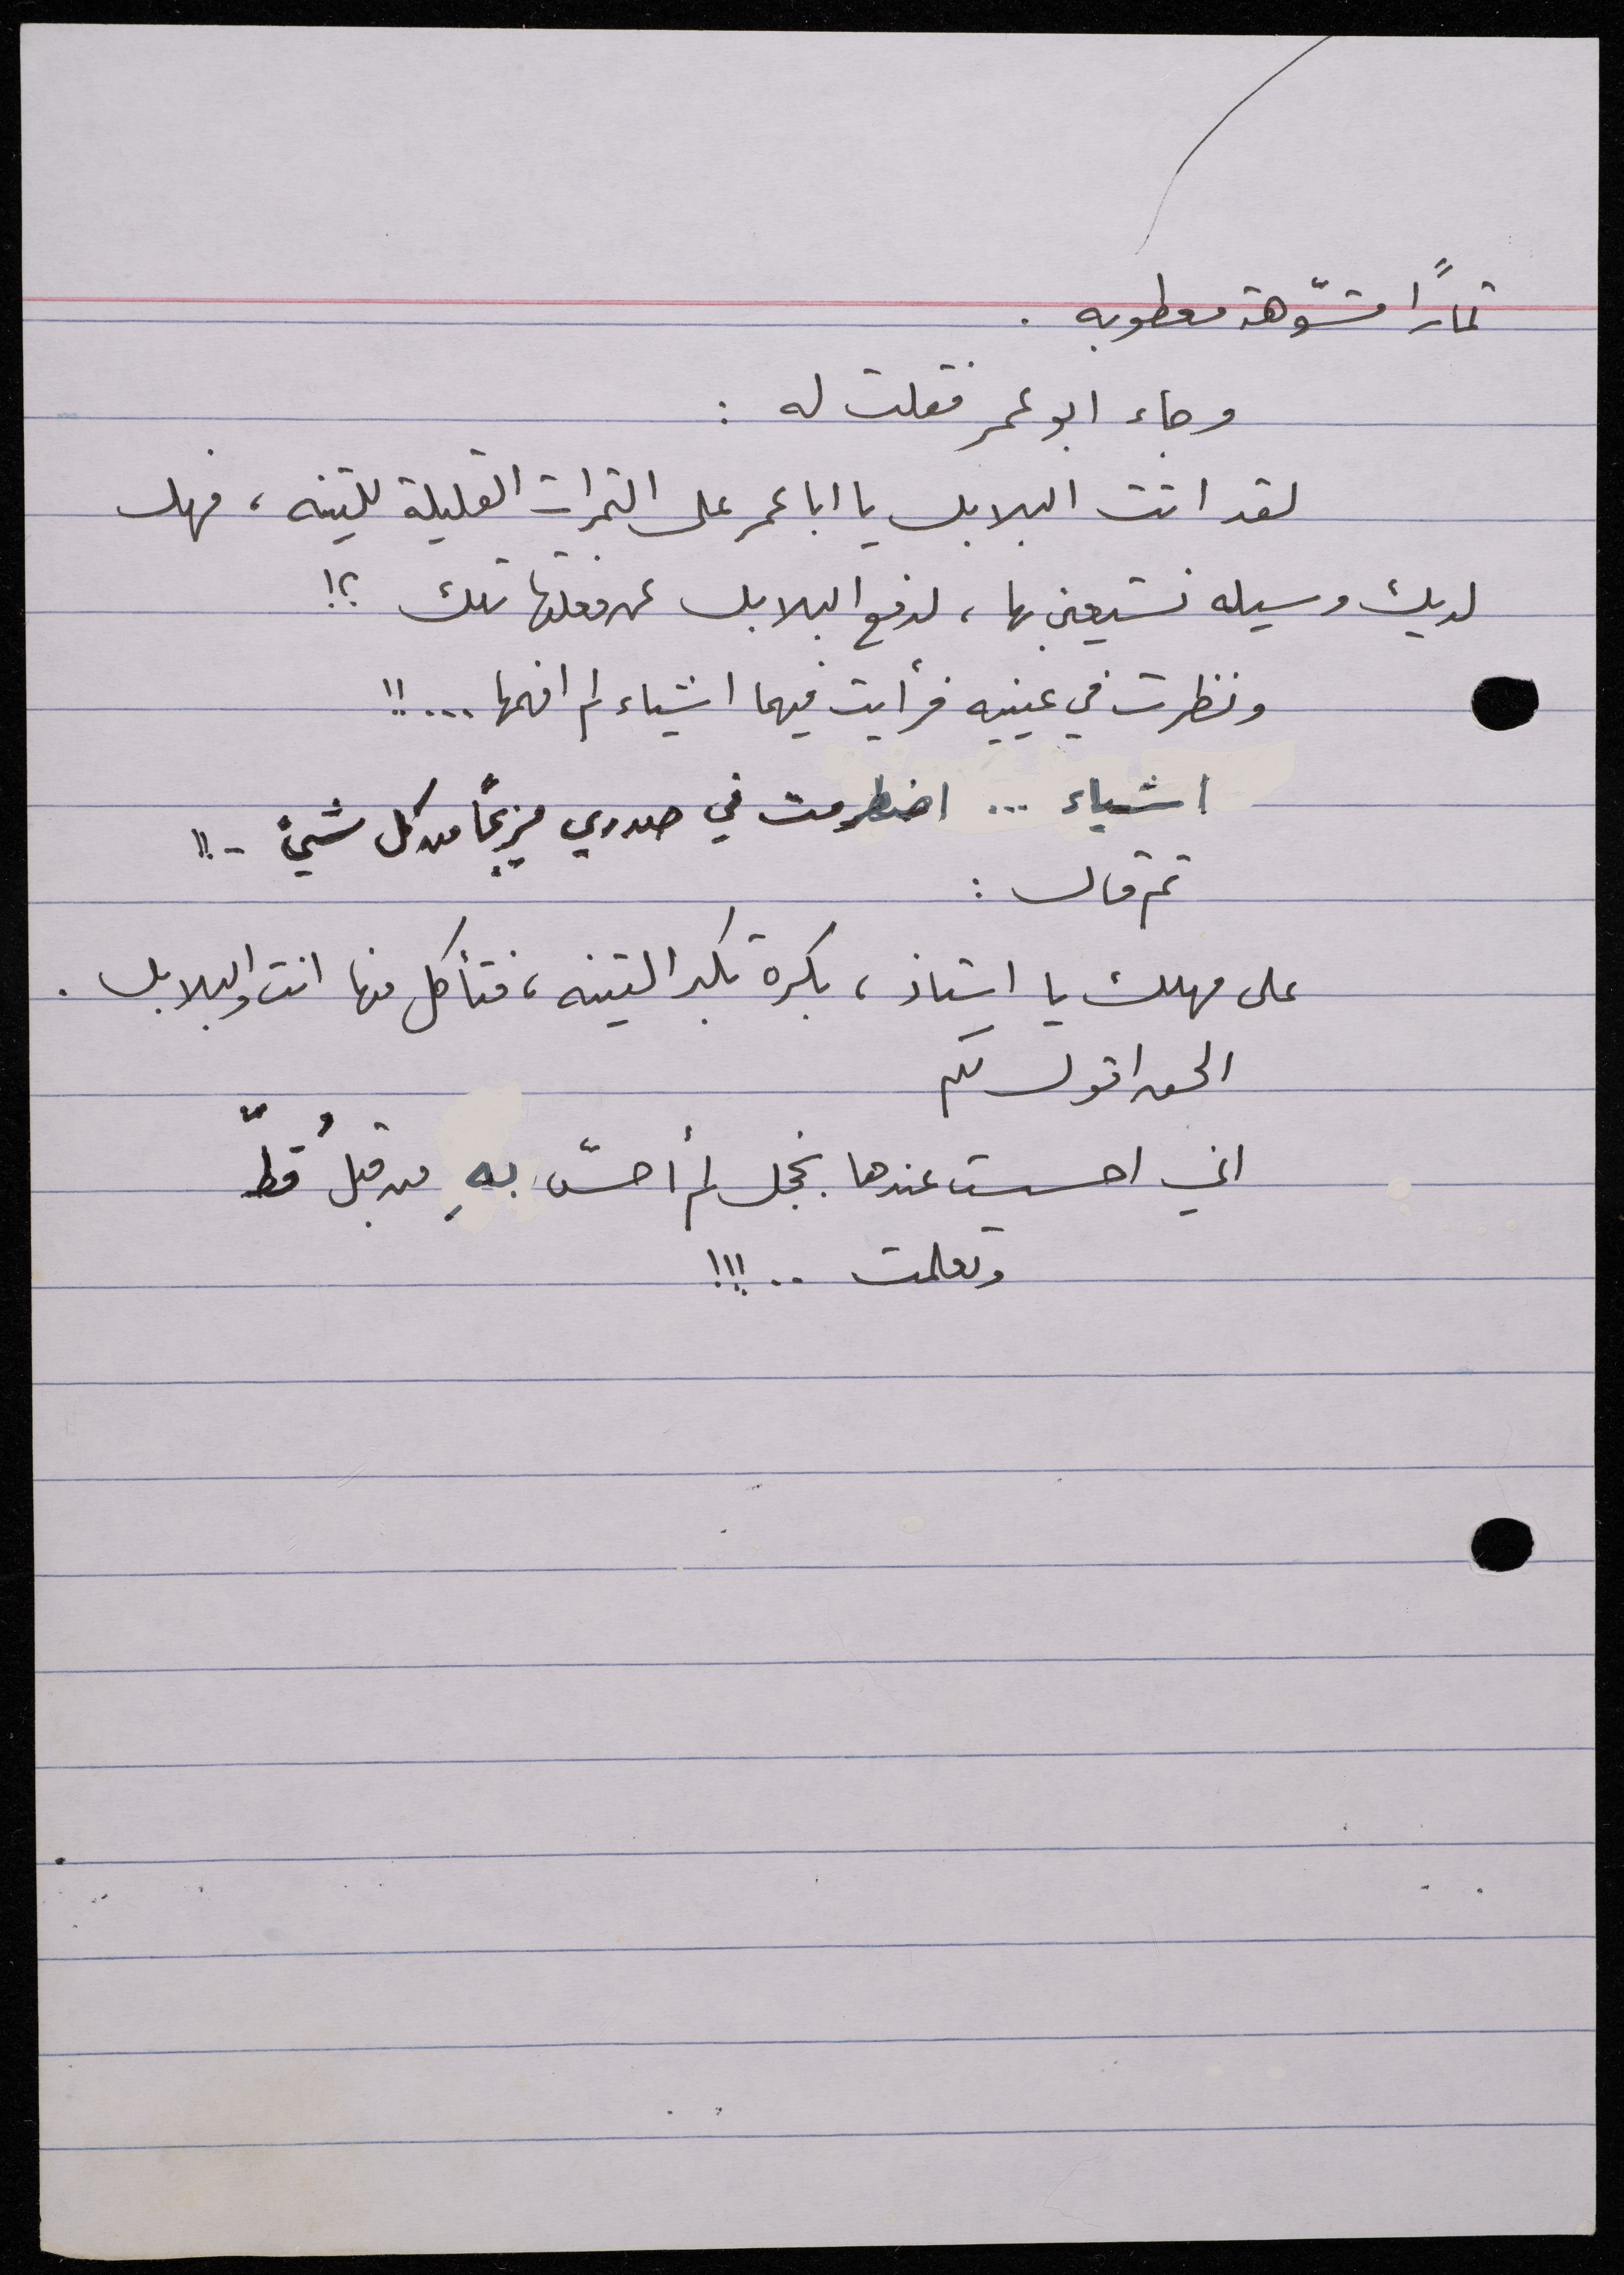 ثمارًا مشوّهة معطوبه .
وجاء ابو عمر فقلت له :
لقد اتت البلابل يا ابا عمر على الثمرات القليلة للتينه ، فهل
لديك وسيله نستعين بها ، لدفع البلابل عن فعلتها تلك ؟!
ونظرت في عينيه فرأيت فيهما اشياء لم افهمها ... !!
اشياء ... اضطرمت في صدري مزيجًا من كل شيئ .. !!
ثم قال :
على مهلك يا استاذ ، بكرة تكبر التينه ، فتأكل منها انت والبلابل .
الحق اقول لكم
اني احسست عندها بخجل لم أحسّ بهِ من قبلُ قطّ
وتعلمت .. !!!